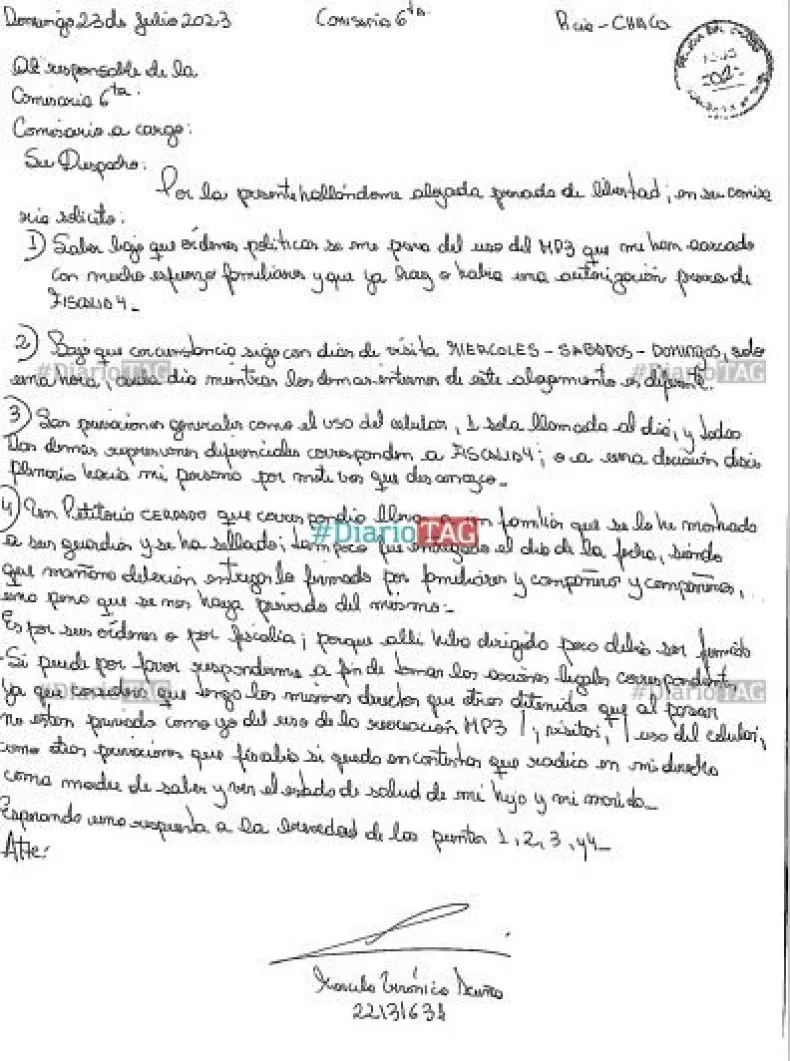 Domingo 23 de Julio 2023 Comisaria 6ta. Rcia - CHACO
Al responsable de la
Comisaria 6ta.
Comisario a cargo:
Su Despacho:
Por la presente hallándome alojada privada de libertad; en su comisa
ria solicito:
1) Saber bajo que órdenes políticas se me priva del uso del MP3 que me han acercado
con mucho esfuerzo familiares y que ya hay o había una autorización previa de
FISCALIA 4._
2) Bajo que circunstancia sigo con dias de visita MIERCOLES - SABADOS - DOMINGOS, solo
una hora, cada dia mientras los demas internos de este alojamiento es diferente.
#DiarioTAG #DiarioTAG
3) Son privaciones generales como el uso del celular, 1 sola llamada al dia, y todas
las demas supresiones diferenciales corresponden a FISCALIA 4; o a una decisión disci
plinaria hacia mi persona por motivos que desconozco._
4) Un Petitorio CERRADO que correspondia a un familiar que se lo he mostrado
#DiarioTAG
a sus guardias y se ha sellado; tampoco fue entregado el dia de la fecha, siendo
que mañana deberian entregarlo firmado por familiares y compañeros y compañeras,
una pena que se nos haya privado del mismo._
Es por sus órdenes o por fiscalia; porque alli hubo dirigido pero debia ser
Si puede por favor responderme a fin de tomar las acciones legales correspondient,
#DiarioTAG #DiarioTAG
ya que considero que tengo los mismos derechos que otras detenidas que al pasar
no estan privada como yo del uso de la recreación MP3 /, y visitas, / uso del celular,
como otras privaciones que fiscalia si quedo en contestar que radica en mi derecho
como madre de saber y ver el estado de salud de mi hijo y mi marido._
Esperando una respuesta a la brevedad de los puntos 1, 2, 3, y 4_
Atte:
Marcela Verónica Acuña
22131631